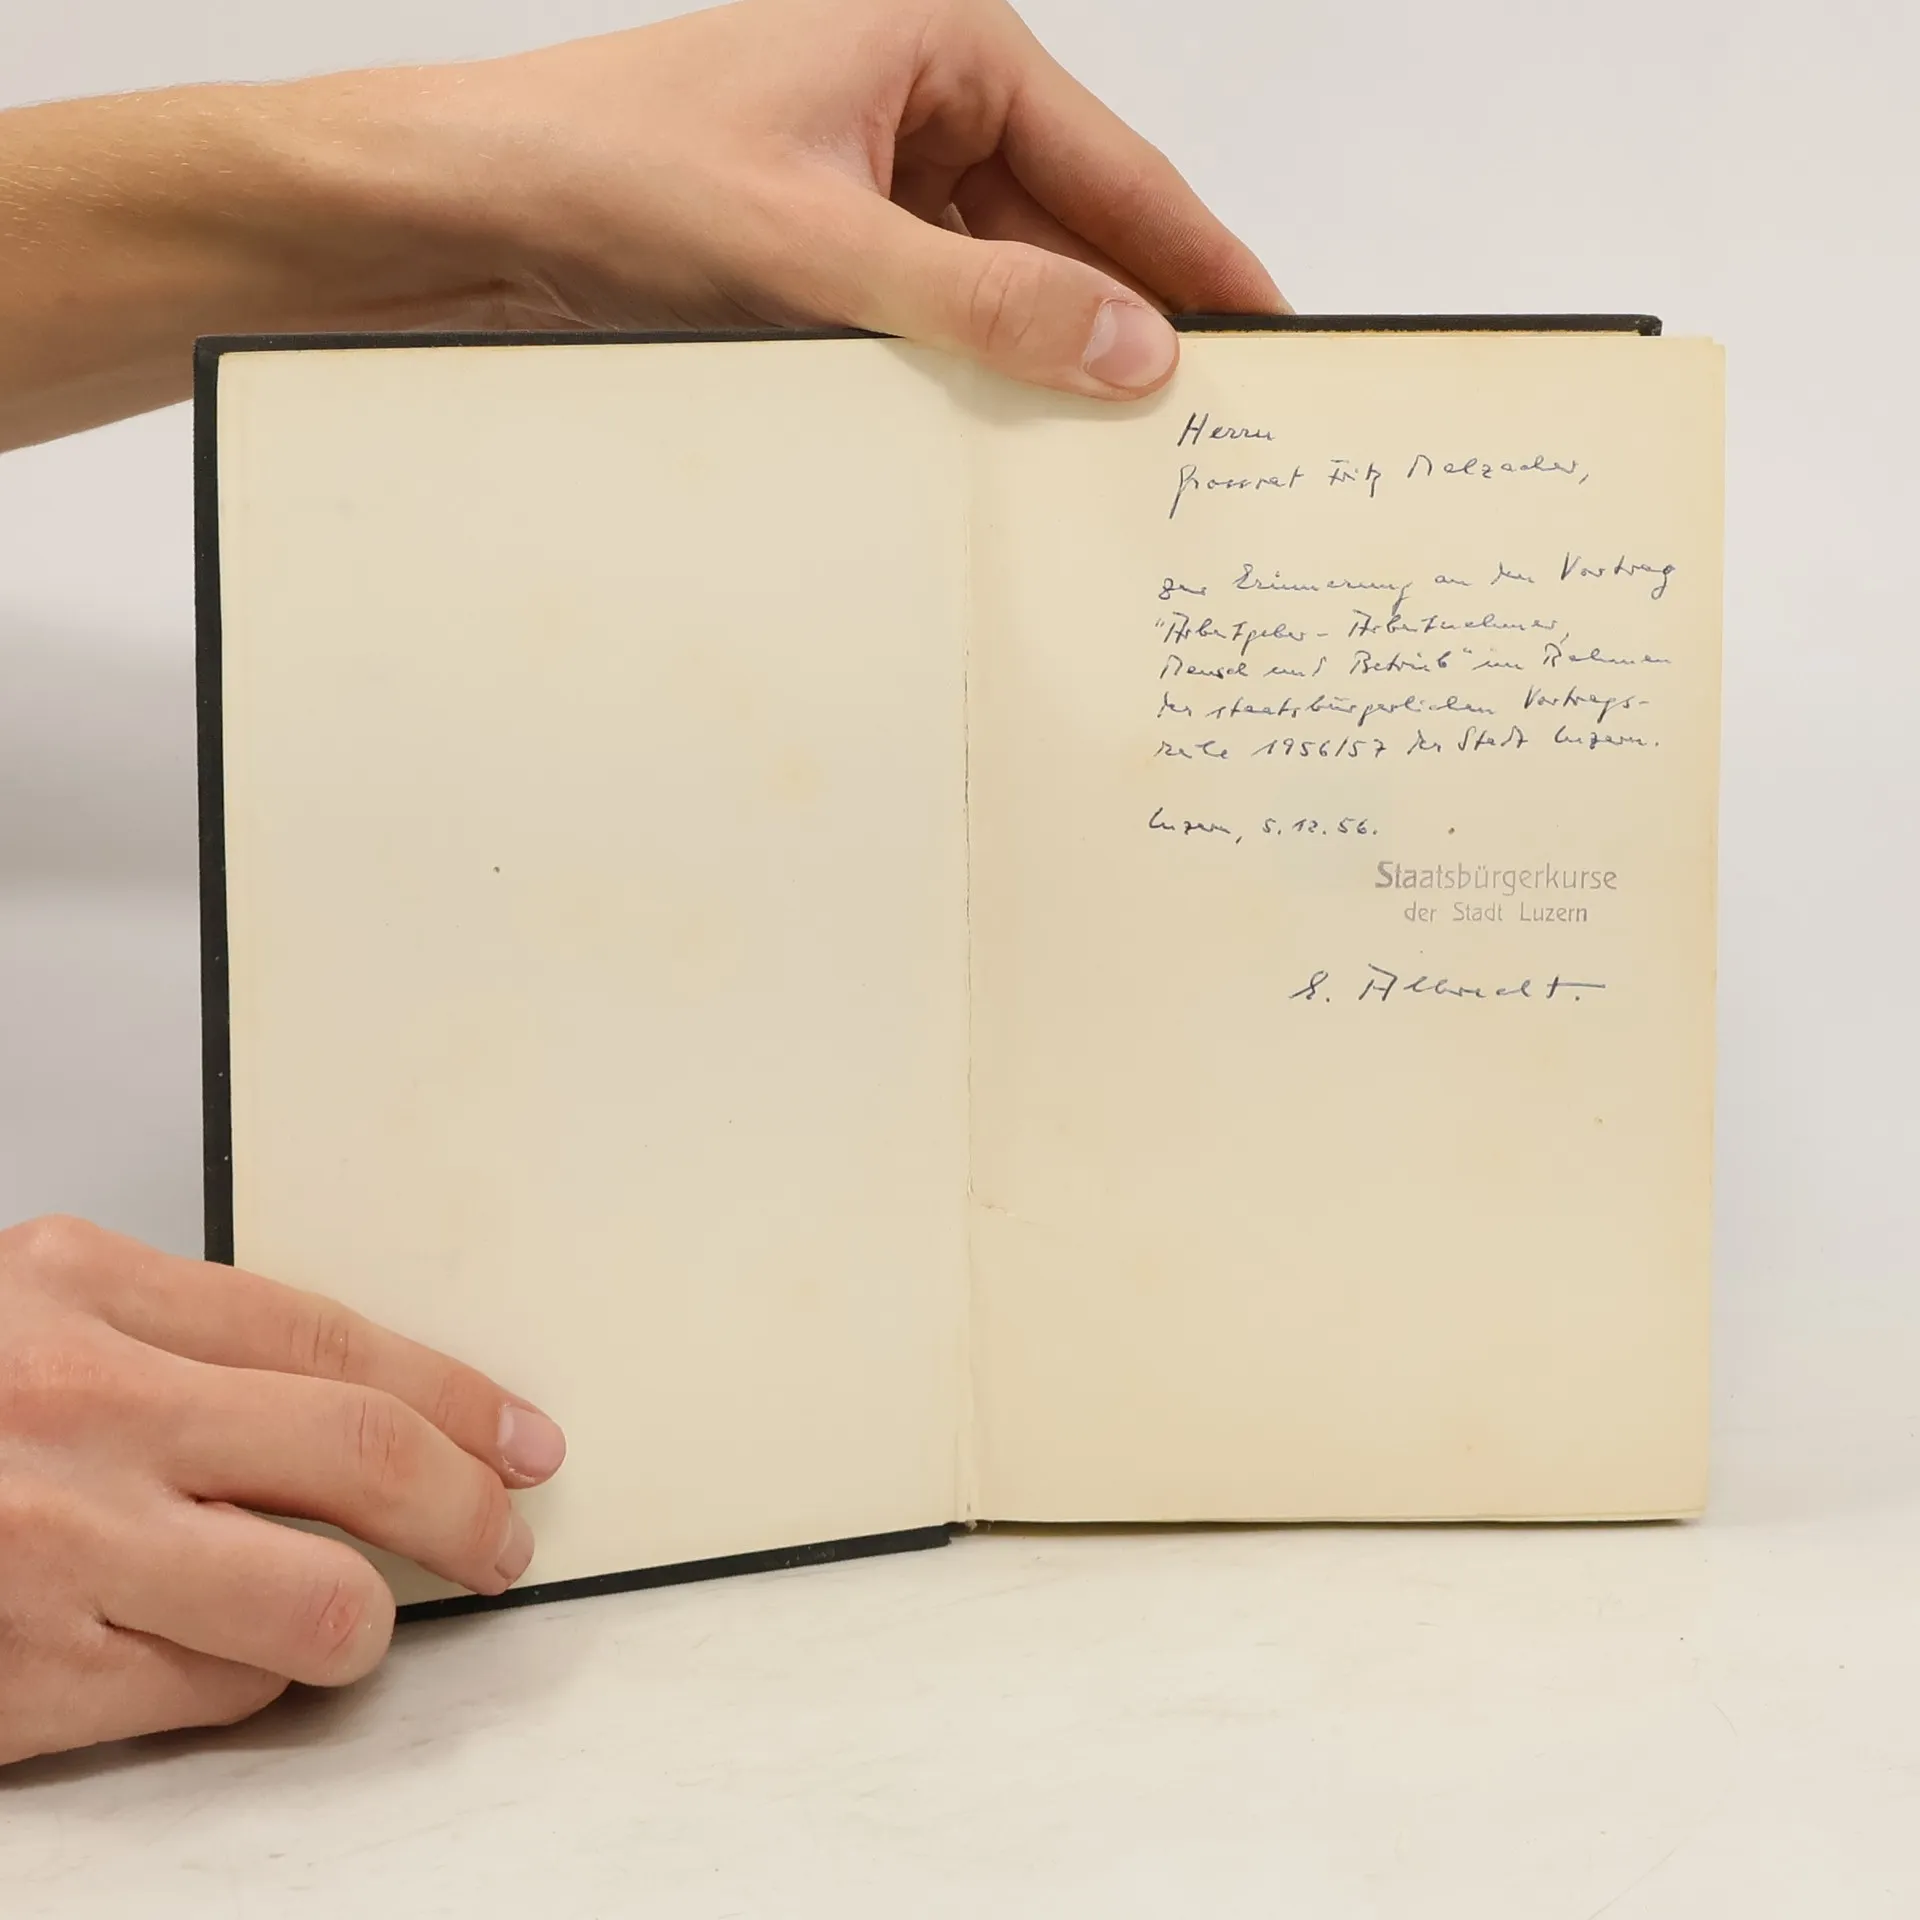 Herrn
Grossrat Fritz Malzacher,
zur Erinnerung an den Vortrag
"Arbeitgeber - Arbeitnehmer,
Mensch und Betrieb" im Rahmen
der staatsbürgerlichen Vortrags-
reihe 1956/57 der Stadt Luzern.
Luzern, 5.12.56.
Staatsbürgerkurse
der Stadt Luzern
E. Albrecht.